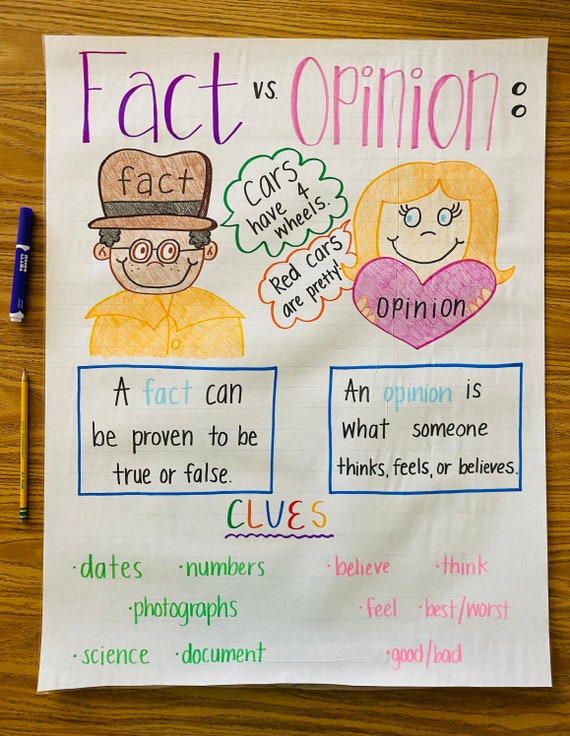 Fact vs. Opinion:
fact
Cars
have 4
wheels.
Red cars
are pretty!
opinion
A fact can
be proven to be
true or false.
An opinion is
what someone
thinks, feels, or believes.
CLUES
·dates ·numbers
·photographs
·science ·document
·believe ·think
·feel ·best/worst
·good/bad